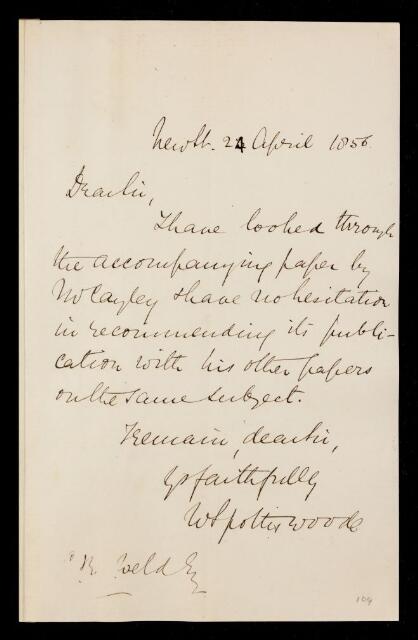 New St. 24 April 1856.
Dear Sir,
I have looked through
the accompanying paper by
Mr Cayley & have no hesitation
in recommending its publi-
cation with his other papers
on the same subject.
I remain, dear Sir,
Yrs faithfully
W Spottiswoode
R Weld Esq
104